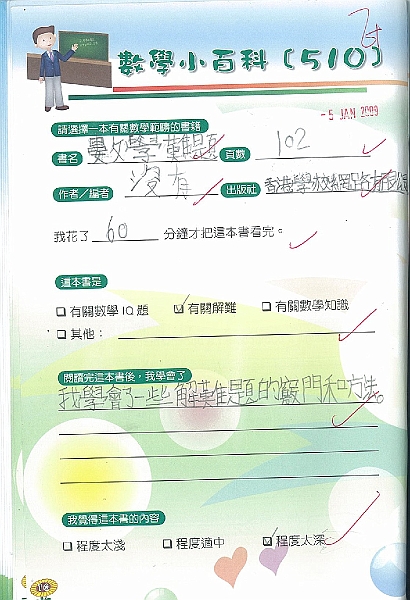 數學小百科（510）
-5 JAN 2009
請選擇一本有關數學範疇的書籍
書名 數學難題 頁數 102
作者／編者 沒有 出版社 香港學校網
我花了 60 分鐘才把這本書看完。
這本書是
□ 有關數學IQ題 ☑ 有關解難 □ 有關數學知識
□ 其他：
閱讀完這本書後，我學會了
我學會了一些解難題的竅門和方法。
我覺得這本書的內容
□ 程度太淺 □ 程度適中 ☑ 程度太深